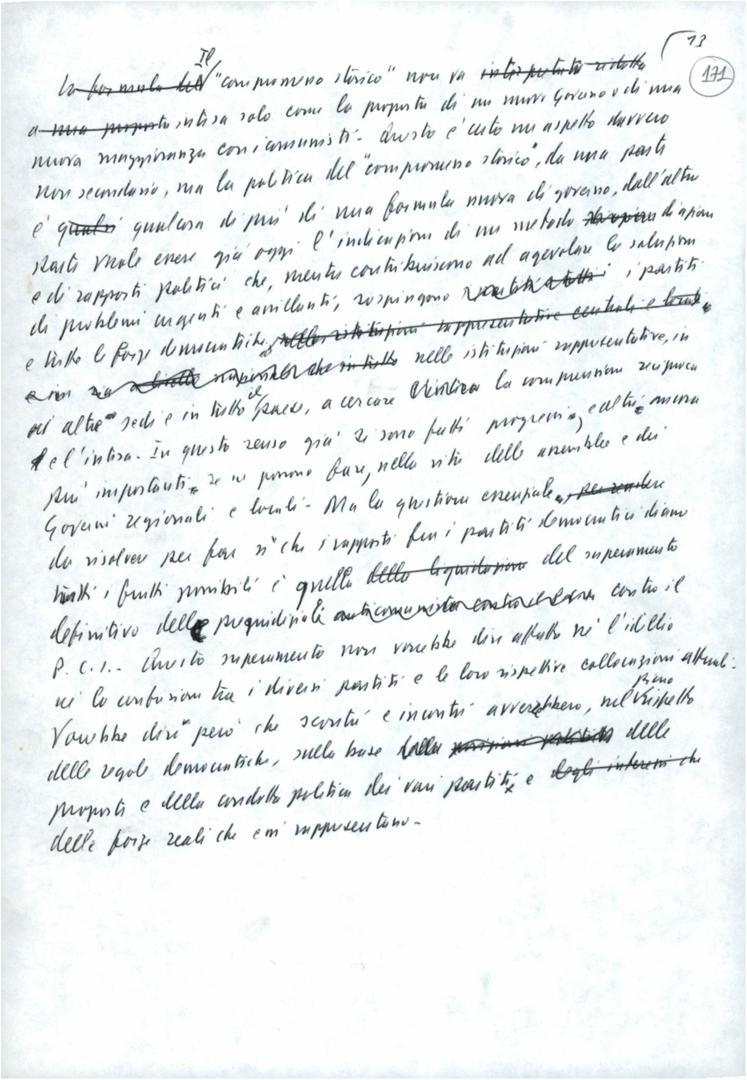 13
171
Il
La formula del "compromesso storico" non va interpretato ridotto
a una proposta intesa solo come la proposta di un nuovo Governo o di una
nuova maggioranza con i comunisti. Questo è certo un aspetto davvero
non secondario, ma la politica del "compromesso storico", da una parte
è qualcosa di più di una formula nuova di governo, dall'altra
parte vuole essere già oggi l'indicazione di un metodo di azione
e di rapporti politici che, mentre contribuiscono ad agevolare la soluzione
di problemi urgenti e assillanti, sospingono i partiti
e tutte le forze democratiche, nelle istituzioni rappresentative centrali e locali
nelle istituzioni rappresentative, in
altre sedi e in tutto il paese, a cercare la comprensione reciproca
e l'intesa. In questo senso già si sono fatti progressi, e altri ancora
più importanti se ne possono fare, nella vita delle assemblee e dei
Governi regionali e locali. Ma la questione essenziale, per rendere
da risolvere per far sì che i rapporti fra i partiti democratici diano
tutti i frutti possibili è quella della liquidazione del superamento
definitivo della pregiudiziale contro il
P.C.I.. Questo superamento non vorrebbe dire affatto né l'idillio
né la confusione tra i diversi partiti e le loro rispettive collocazioni attuali.
pieno
Vorrebbe dire però che scontri e incontri avverrebbero, nel rispetto
delle regole democratiche, sulla base delle
proposte e della condotta politica dei vari partiti e degli interessi che
delle forze reali che essi rappresentano.